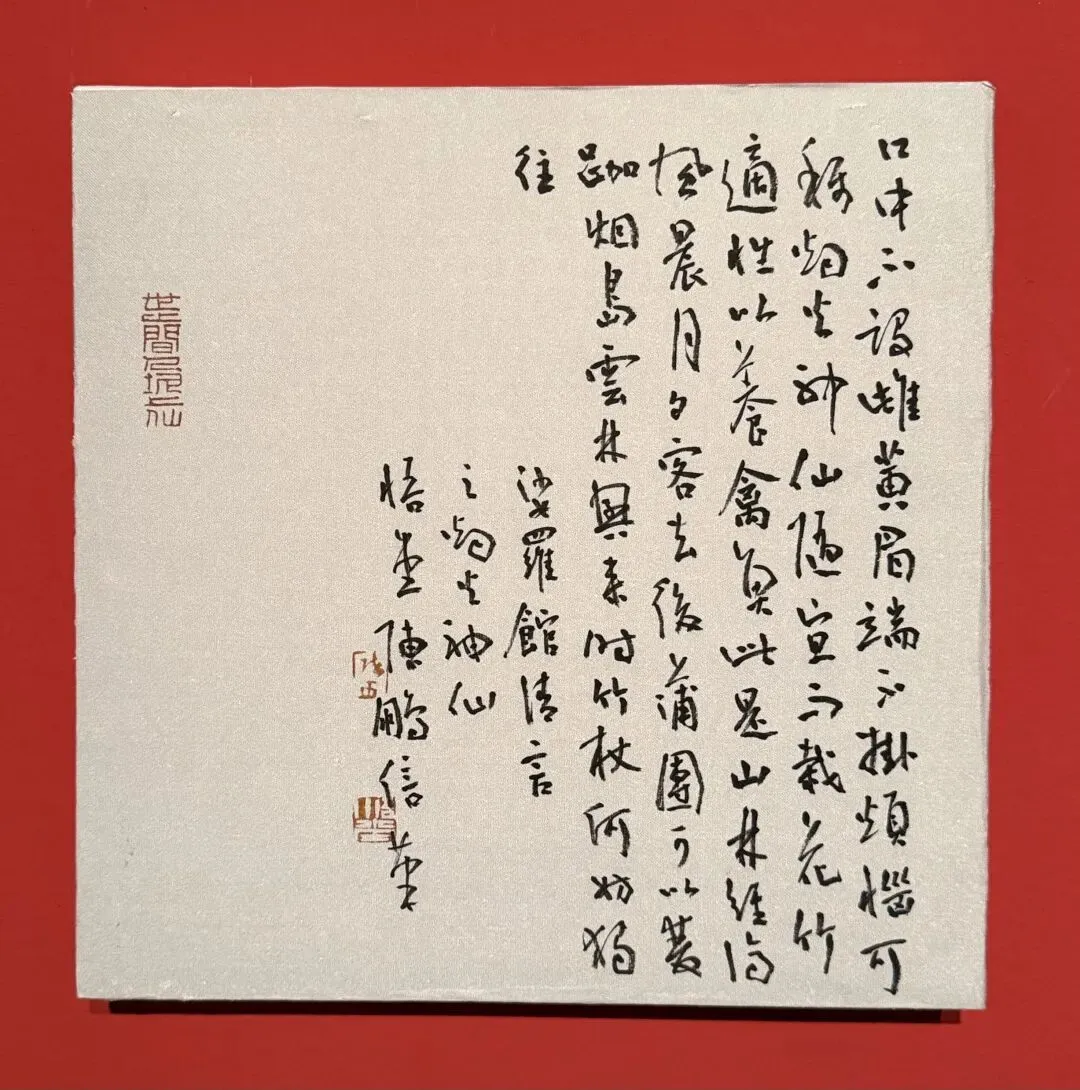 口中不設雌黃眉端不掛煩惱可
稱烟火神仙隨宜而栽花竹
適性以養禽魚此是山林經濟
風晨月夕客去後蒲團可以雙
跏烟島雲林興来时竹杖何妨獨
往
娑羅館清言
之烟火神仙
悟堂陳鵬信筆